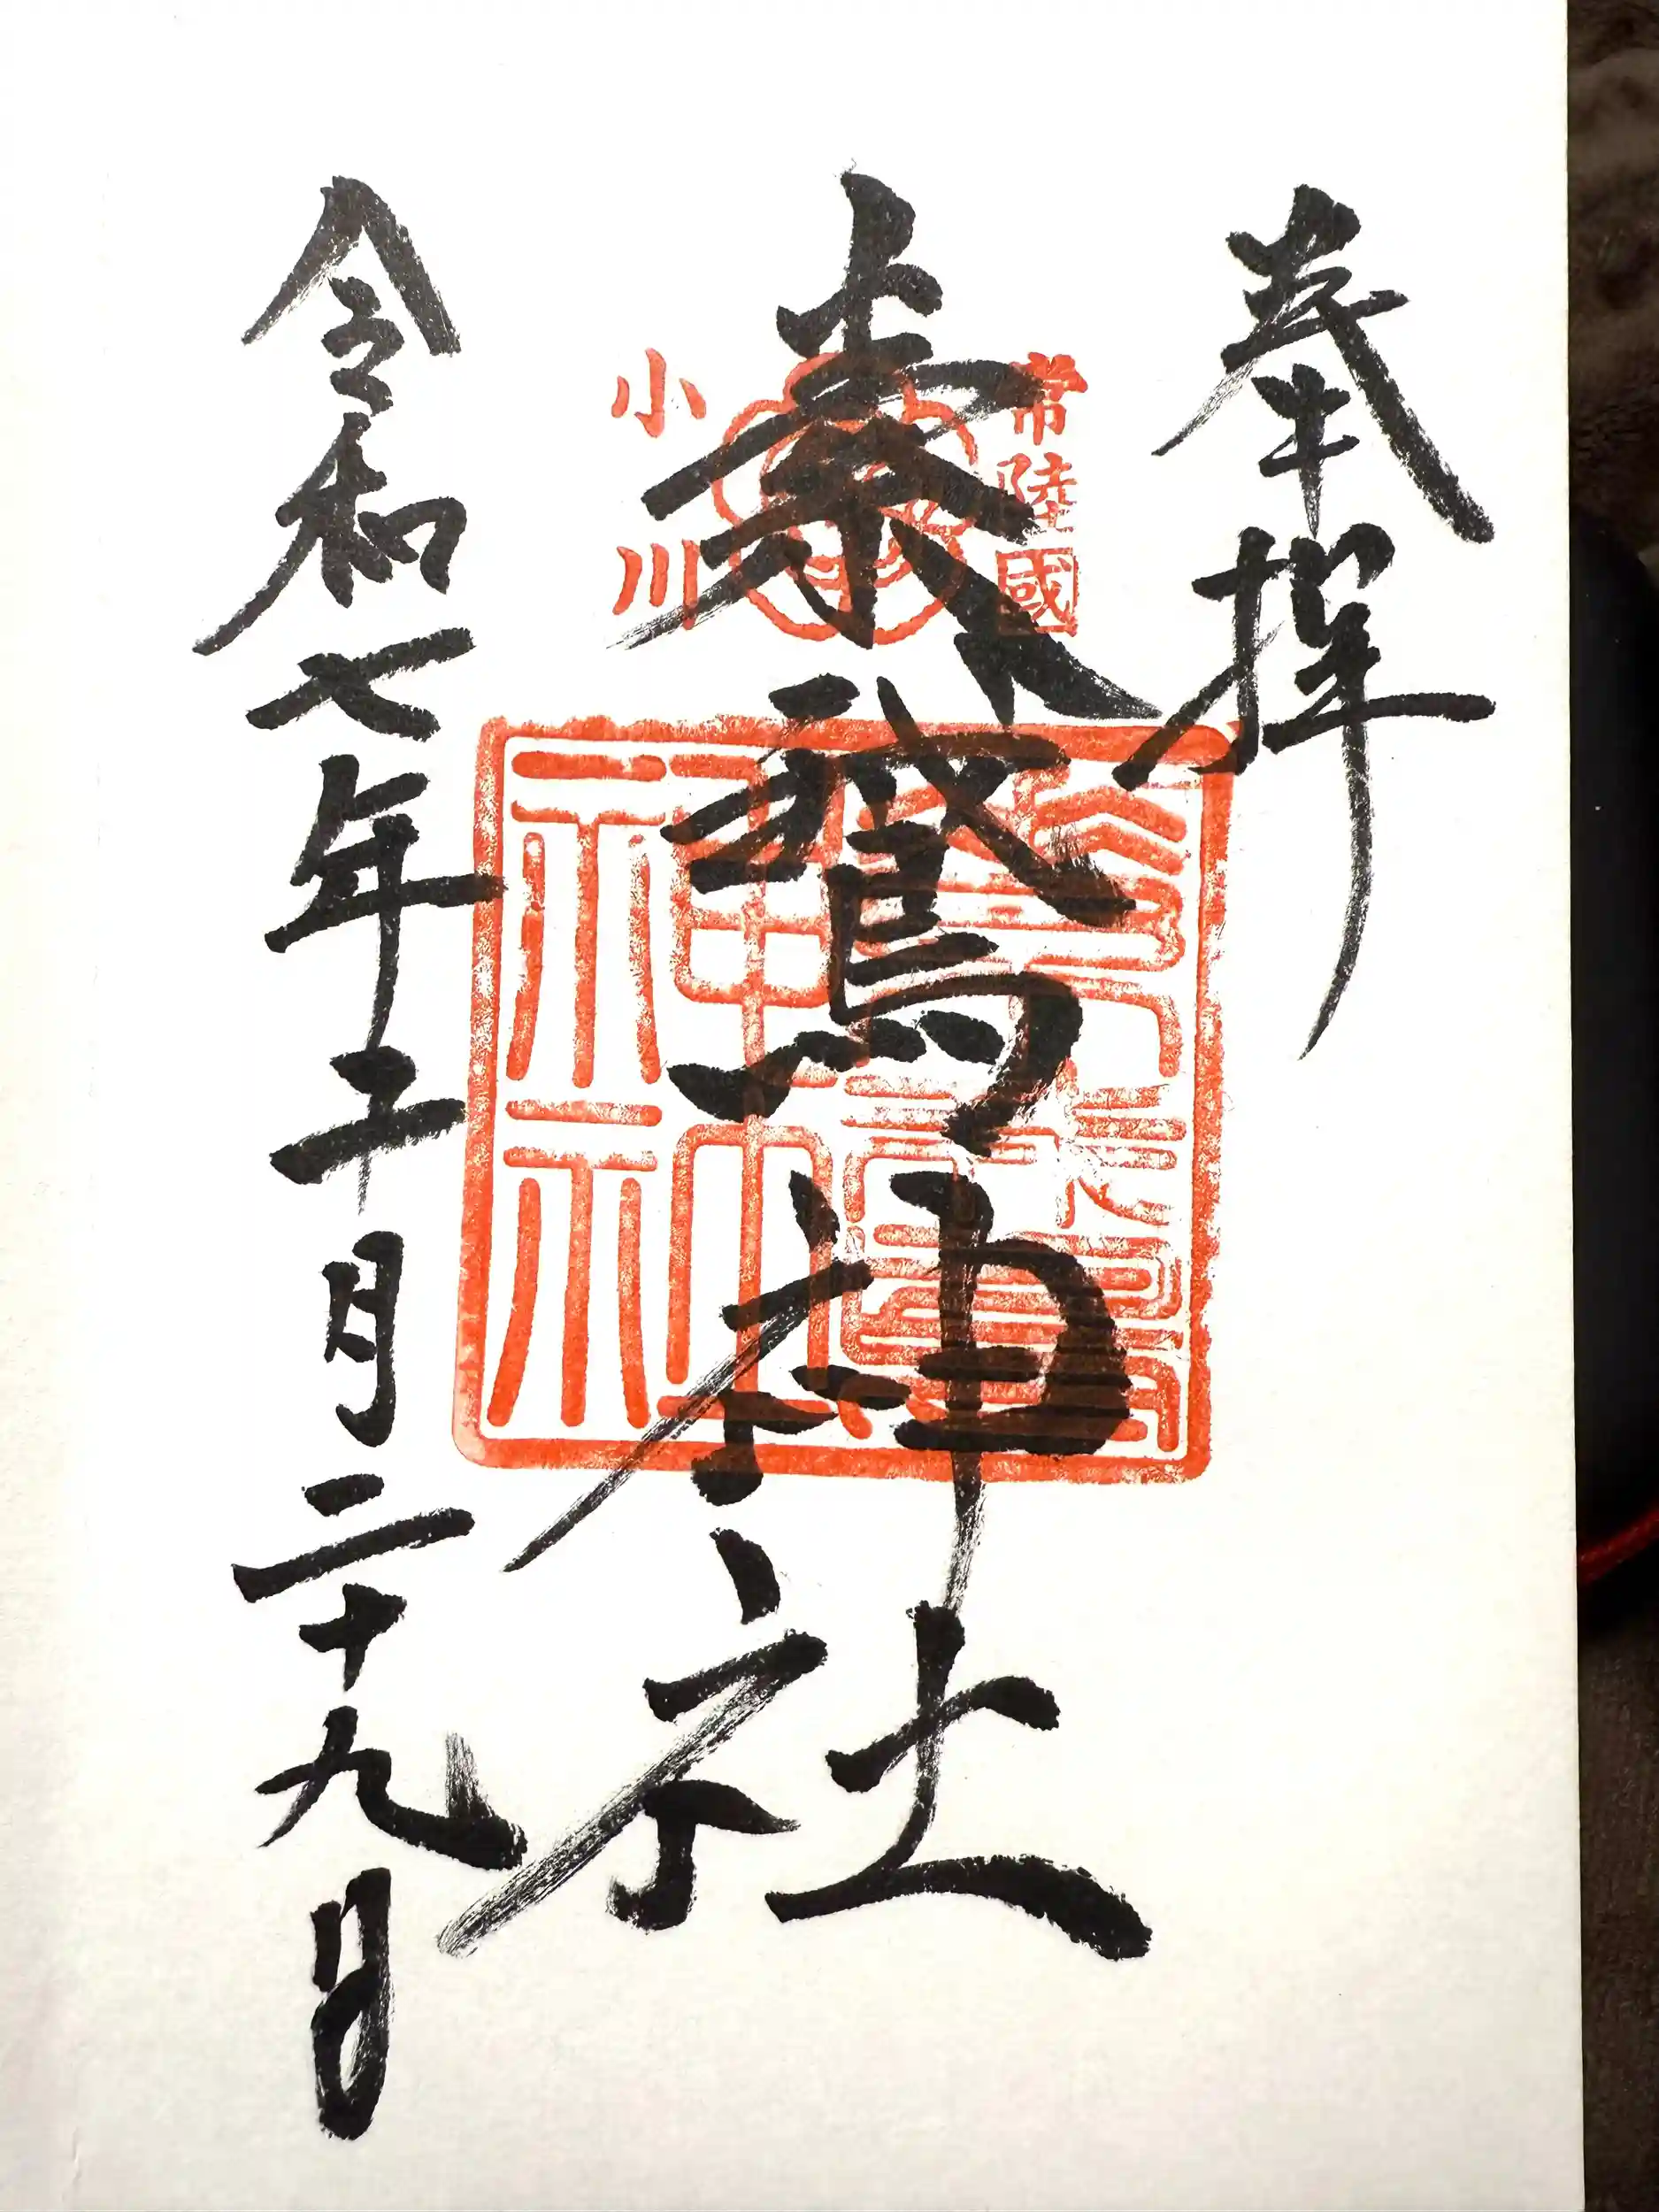 奉拝
常陸國
素鵞神社
小川
令和七年十二月二十九日